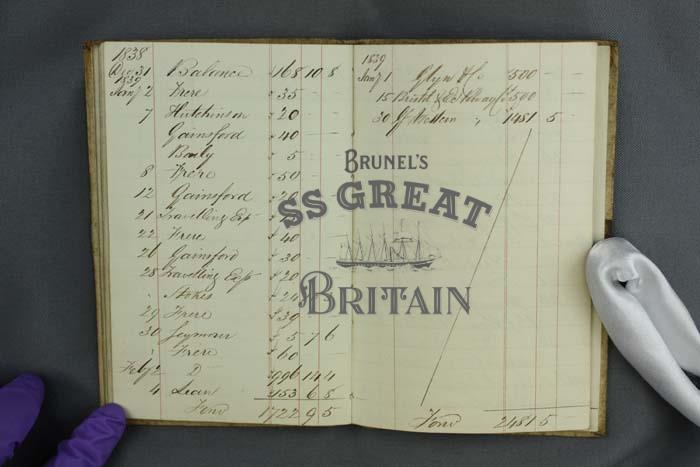 1838
Decr 31 Balance 468 10 8
1839
Jany 2 Frere 35 - -
7 Hutchinson 20 -
Gainsford 40 -
Baily 5 -
8 Frere 50 -
12 Gainsford 20
21 Travelling Exp
22 Frere 40
26 Gainsford 30
28 Travelling Exps 20
Stokes 24
29 Frere
30 Seymour 5 7 6
Frere 60
Feby 2 D 996 14 4
4 453 6
Ford 1722 9 5
1839
Jany 1 Glyn & Co 500 -
15 Bristol & 500 -
30 Gt Western 1481 5 -
Ford 2481 5 -
BRUNEL'S
SS GREAT
BRITAIN